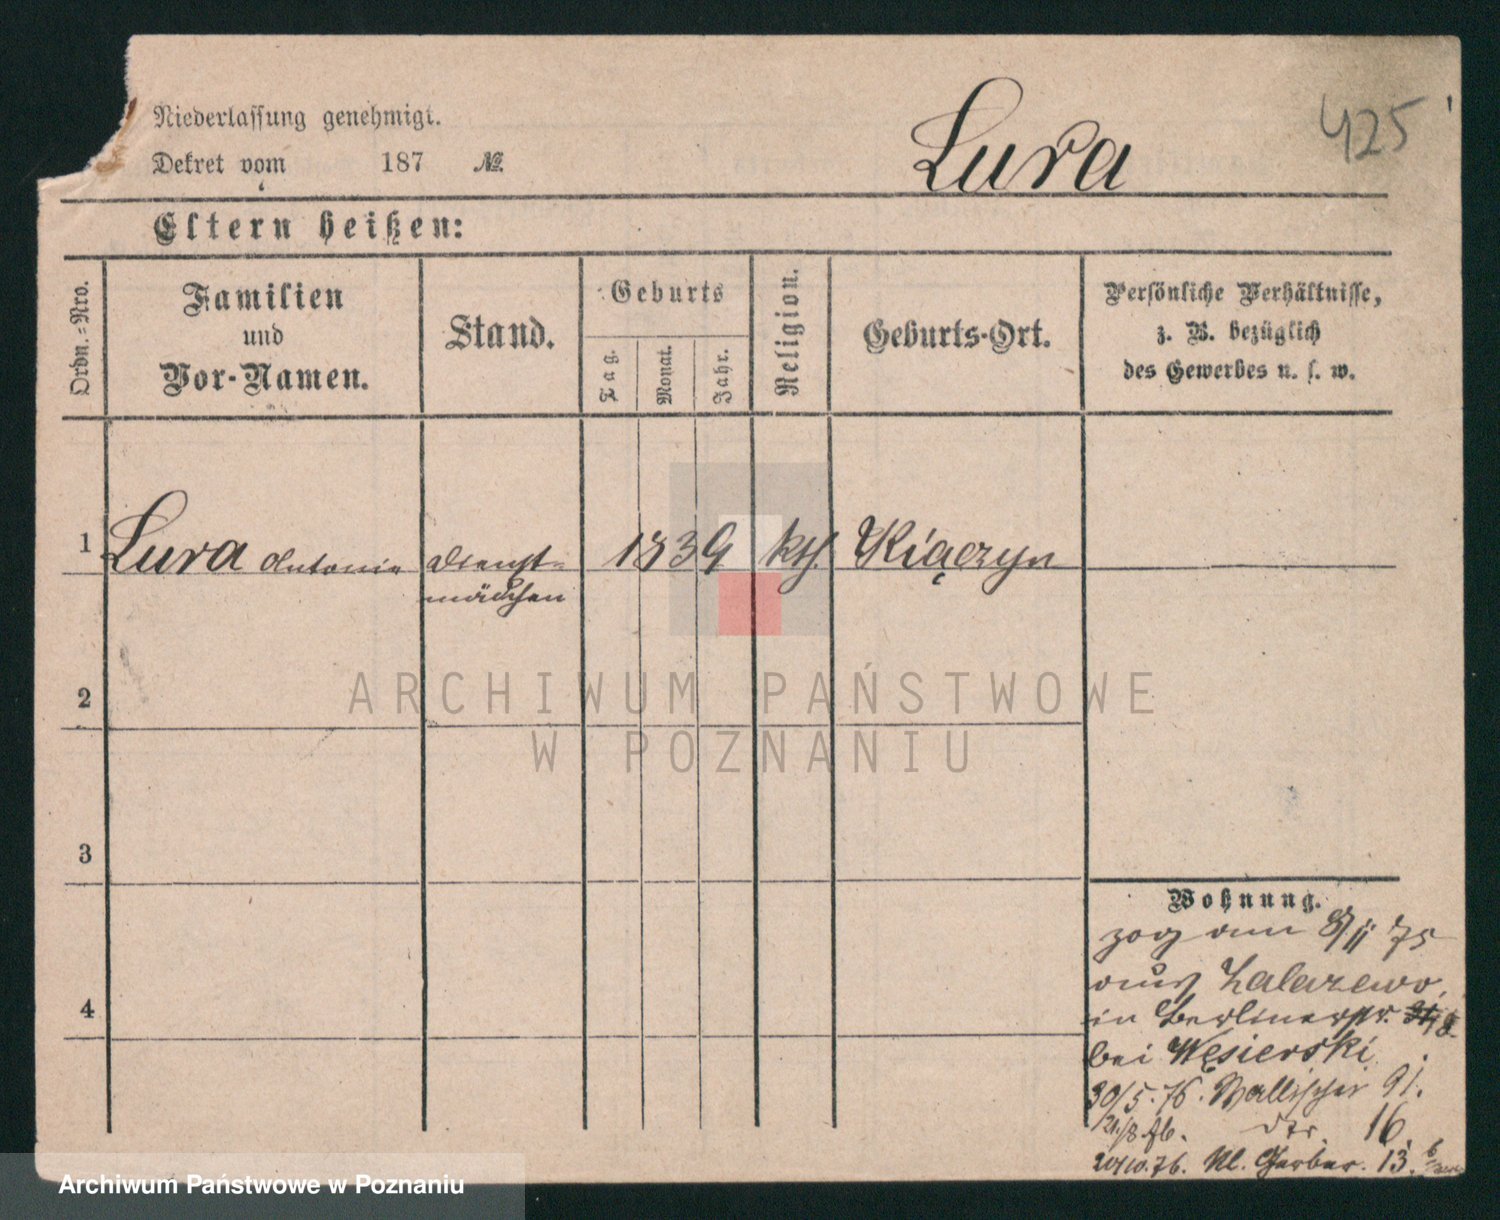 Niederlassung genehmigt.
Dekret vom 187 №
Lura
425
Eltern heißen:
Ordn.-Nro.
Familien
und
Vor-Namen.
Stand.
Geburts
Tag.
Monat.
Jahr.
Religion.
Geburts-Ort.
Persönliche Verhältnisse,
z. B. bezüglich
des Gewerbes u. s. w.
1 Lura Antonie Dienst- 1839 kth. Kiączyn
mädchen
2
ARCHIWUM PAŃSTWOWE
W POZNANIU
3
Wohnung.
zog am 8/11 75
aus Zalazewo,
4
in Berlinerstr.
bei Węsierski
30/5. 76. Wallischei 91.
21/8 76. dto. 16.
20/10. 76. Kl. Gerber. 13.
Archiwum Państwowe w Poznaniu